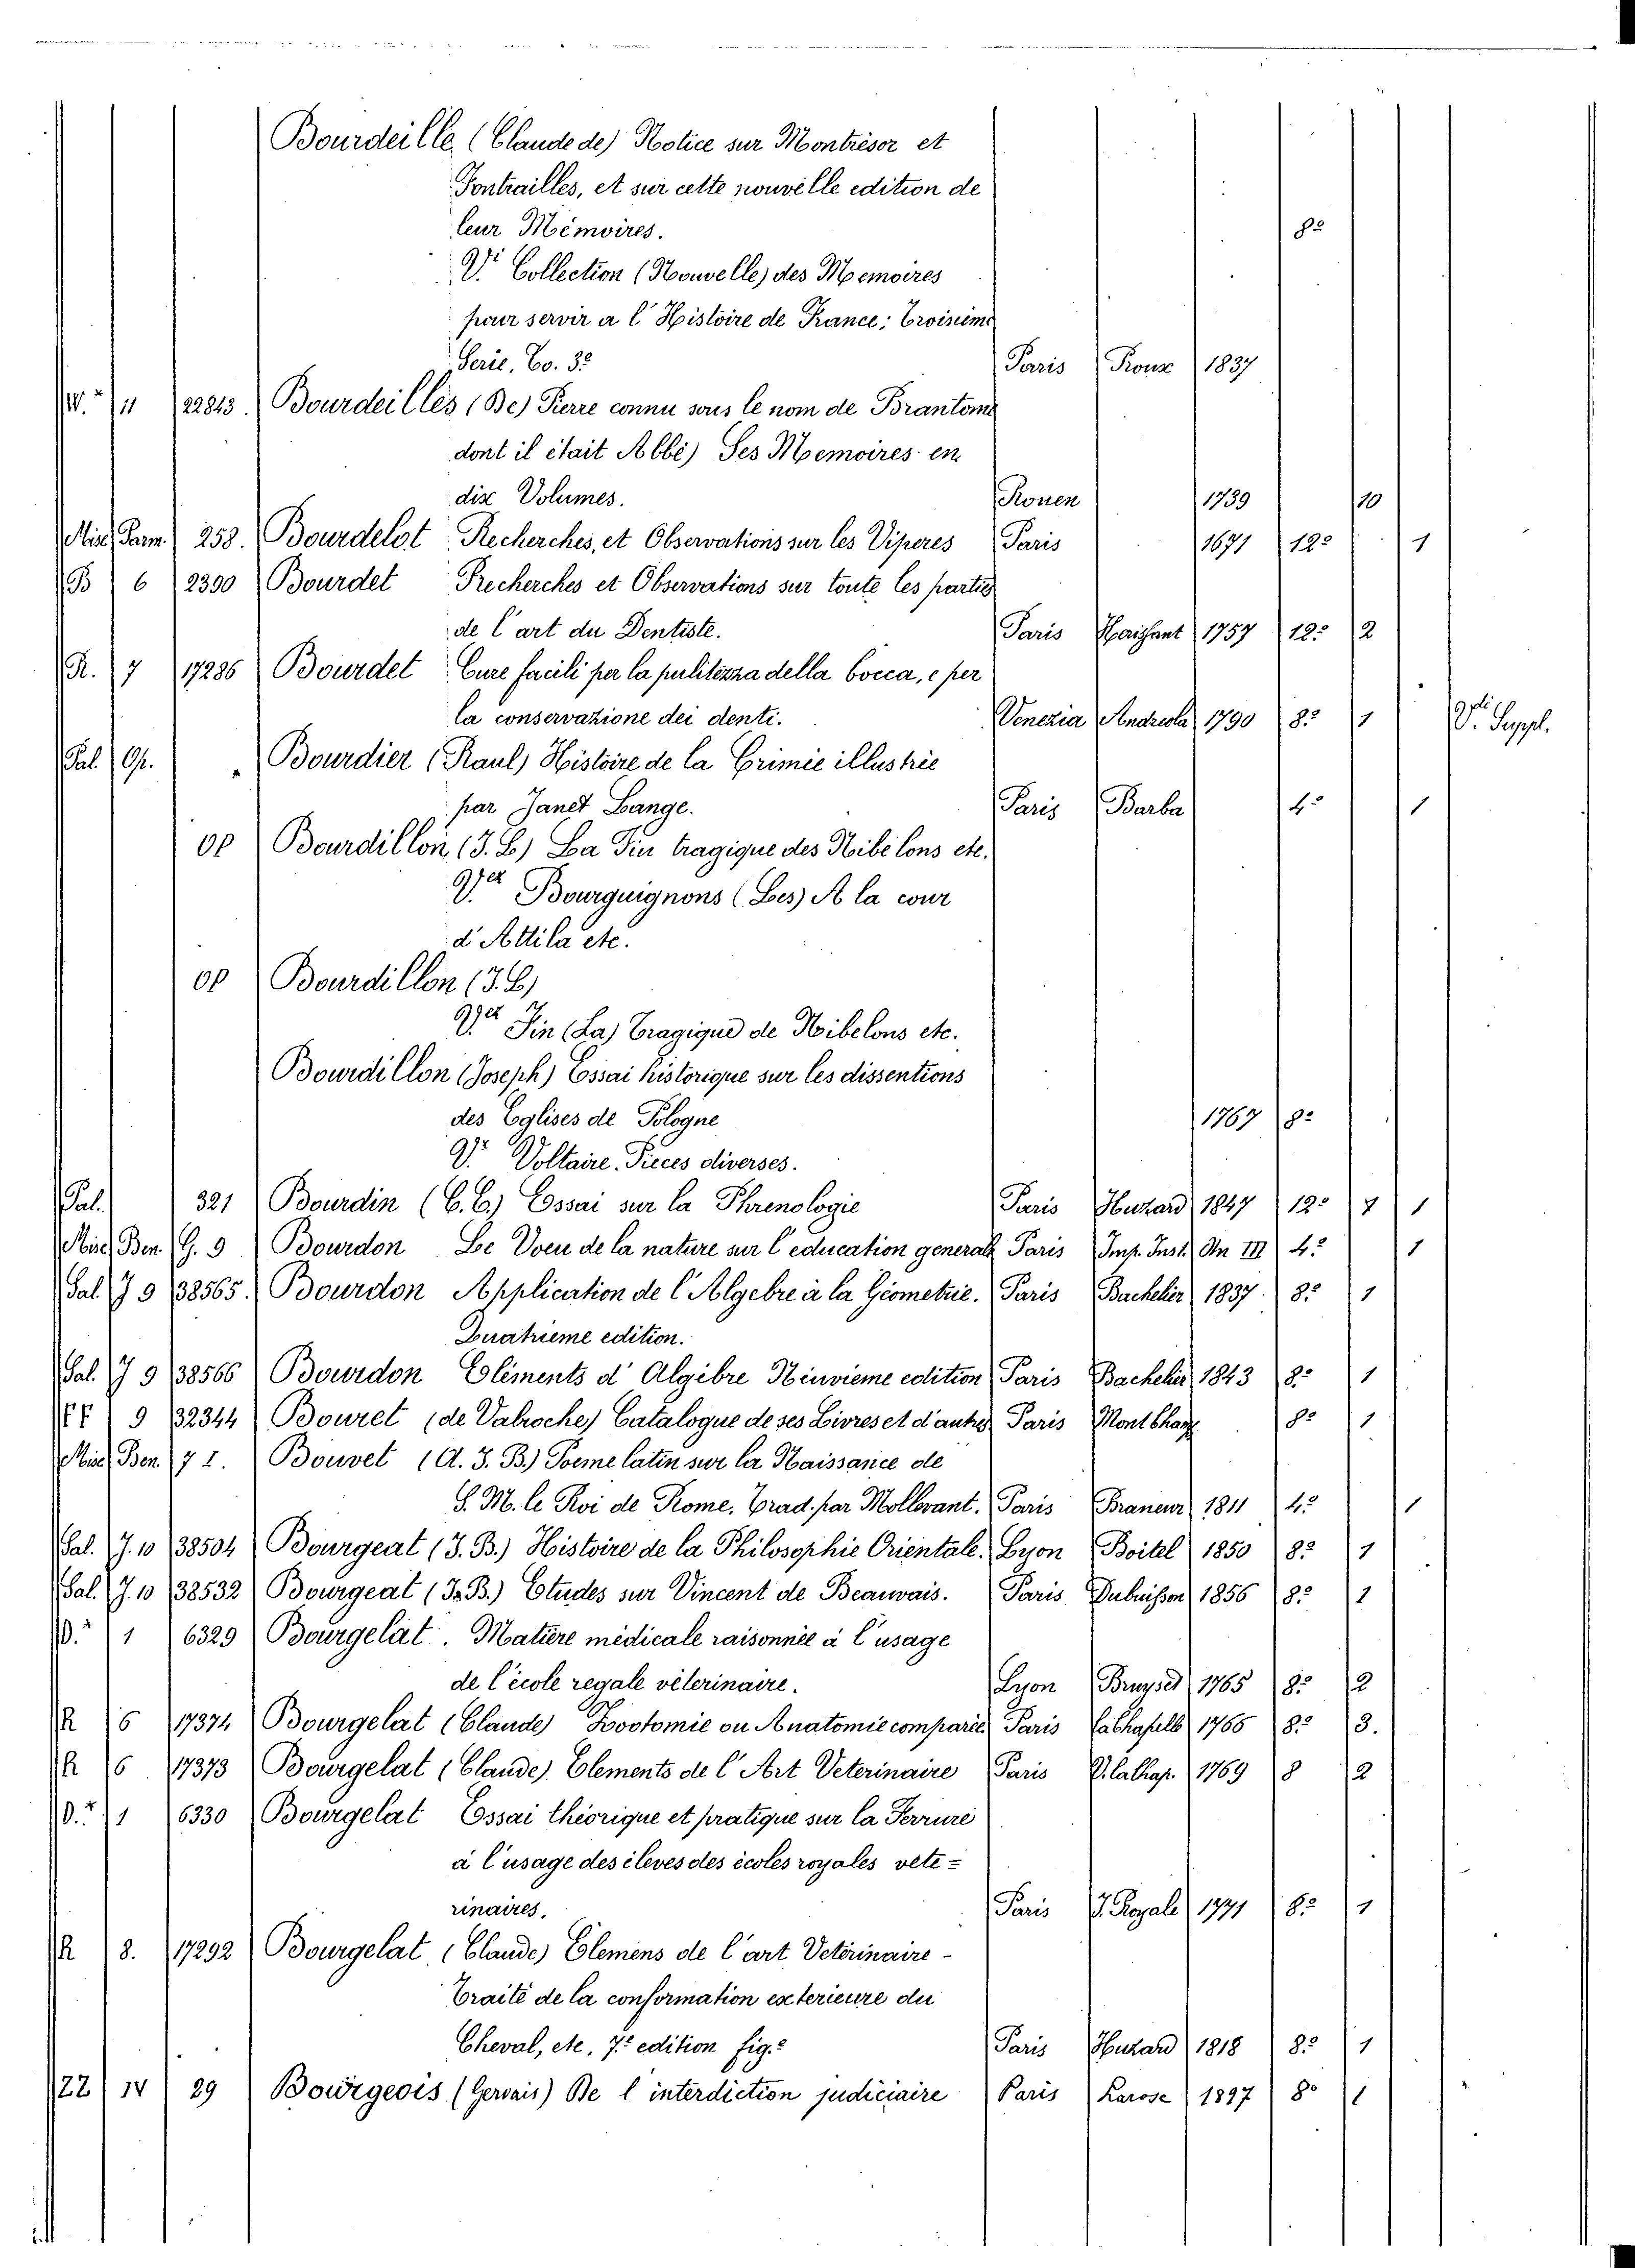 Bourdeille (Claude de) Notice sur Montrèsor et
Fontrailles, et sur cette nouvelle edition de
leur Mèmoires. 8º
V.i Collection (Nouvelle) des Memoires
pour servir a l'Histoire de France; Troisieme
Serie. To. 3º Paris 1837
11 22813. Bourdeilles (De) Pierre connu sous le nom de Brantome
dont il ètait Abbè) Ses Memoires en
dix Volumes. Rouen 1739 10
Misc. Parm. 258. Bourdelot Recherches, et Observations sur les Viperes Paris 1671 12º 1
B 6 2390 Bourdet Recherches et Observations sur toute les parties
de l'art du Dentiste. Paris 1757 12º 2
R. 7 17286 Bourdet Cure facili per la pulitezza della bocca, e per
la conservazione dei denti. Venezia Andreola 1790 8º 1 V.li Suppl.
Pal. Bourdier (Raul) Histoire de la Crimie illustrie
par Janet Lange. Paris Barba 4º 1
op Bourdillon (J. L.) La Fin tragique des Nibelons etc.
V.er Bourguignons (Les) A la cour
d'Attila etc.
op Bourdillon (J. L.)
V.er Fin (La) Tragique de Nibelons etc.
Bourdillon (Joseph) Essai historique sur les dissentions
des Eglises de Pologne 1767 8º
V.r Voltaire. Pieces diverses.
Pal. 321 Bourdin (C. E.) Essai sur la Phrenologie Paris Huzard 1847 12º 1
Misc. Ben. G. 9 Bourdon Le Voeu de la nature sur l'education general Paris Imp. Inst. An III 4º 1
Pal. J 9 38565. Bourdon Application de l'Algebre à la Gèometrie. Paris Bachelier 1837 8º 1
Quatrieme edition.
Pal. J 9 38566 Bourdon Elèments d'Algèbre Neuvieme edition Paris Bachelier 1843 8º 1
FF 9 32344 Bouret (de Valroche) Catalogue de ses Livres et d'autres Paris 8º 1
Misc. Ben. 7 I. Bouvet (A. J. B.) Poeme latin sur la Naissance de
S. M. le Roi de Rome. Trad. par Mollevant. Paris 1811 4º 1
Pal. J. 10 38504 Bourgeat (J. B.) Histoire de la Philosophie Orientale. Lyon Boitel 1850 8º 1
Pal. J. 10 38532 Bourgeat (J. B.) Etudes sur Vincent de Beauvais. Paris Dubuisson 1856 8º 1
1 6329 Bourgelat. Matière mèdicale raisonnèe à l'usage
de l'ècole regale vèterinaire. Lyon Bruyset 1765 8º 2
R 6 17374 Bourgelat (Claude) Zootomie ou Anatomie comparèe Paris 1766 8º 3.
R 6 17373 Bourgelat (Claude). Elements de l'Art Veterinaire Paris 1769 8 2
1 6330 Bourgelat Essai thèorique et pratique sur la Ferrure
à l'usage des èleves des ècoles royales vete=
rinaires. Paris I. Royale 1771 8º 1
R 8. 17292 Bourgelat (Claude) Elemens de l'art Vetèrinaire -
Traitè de la conformation exterieure du
Cheval, etc. 7.e edition fig.e Paris Huzard 1818 8º 1
22 IV 29 Bourgeois (Gervais) De l'interdiction judiciaire Paris Larose 1897 8º 1